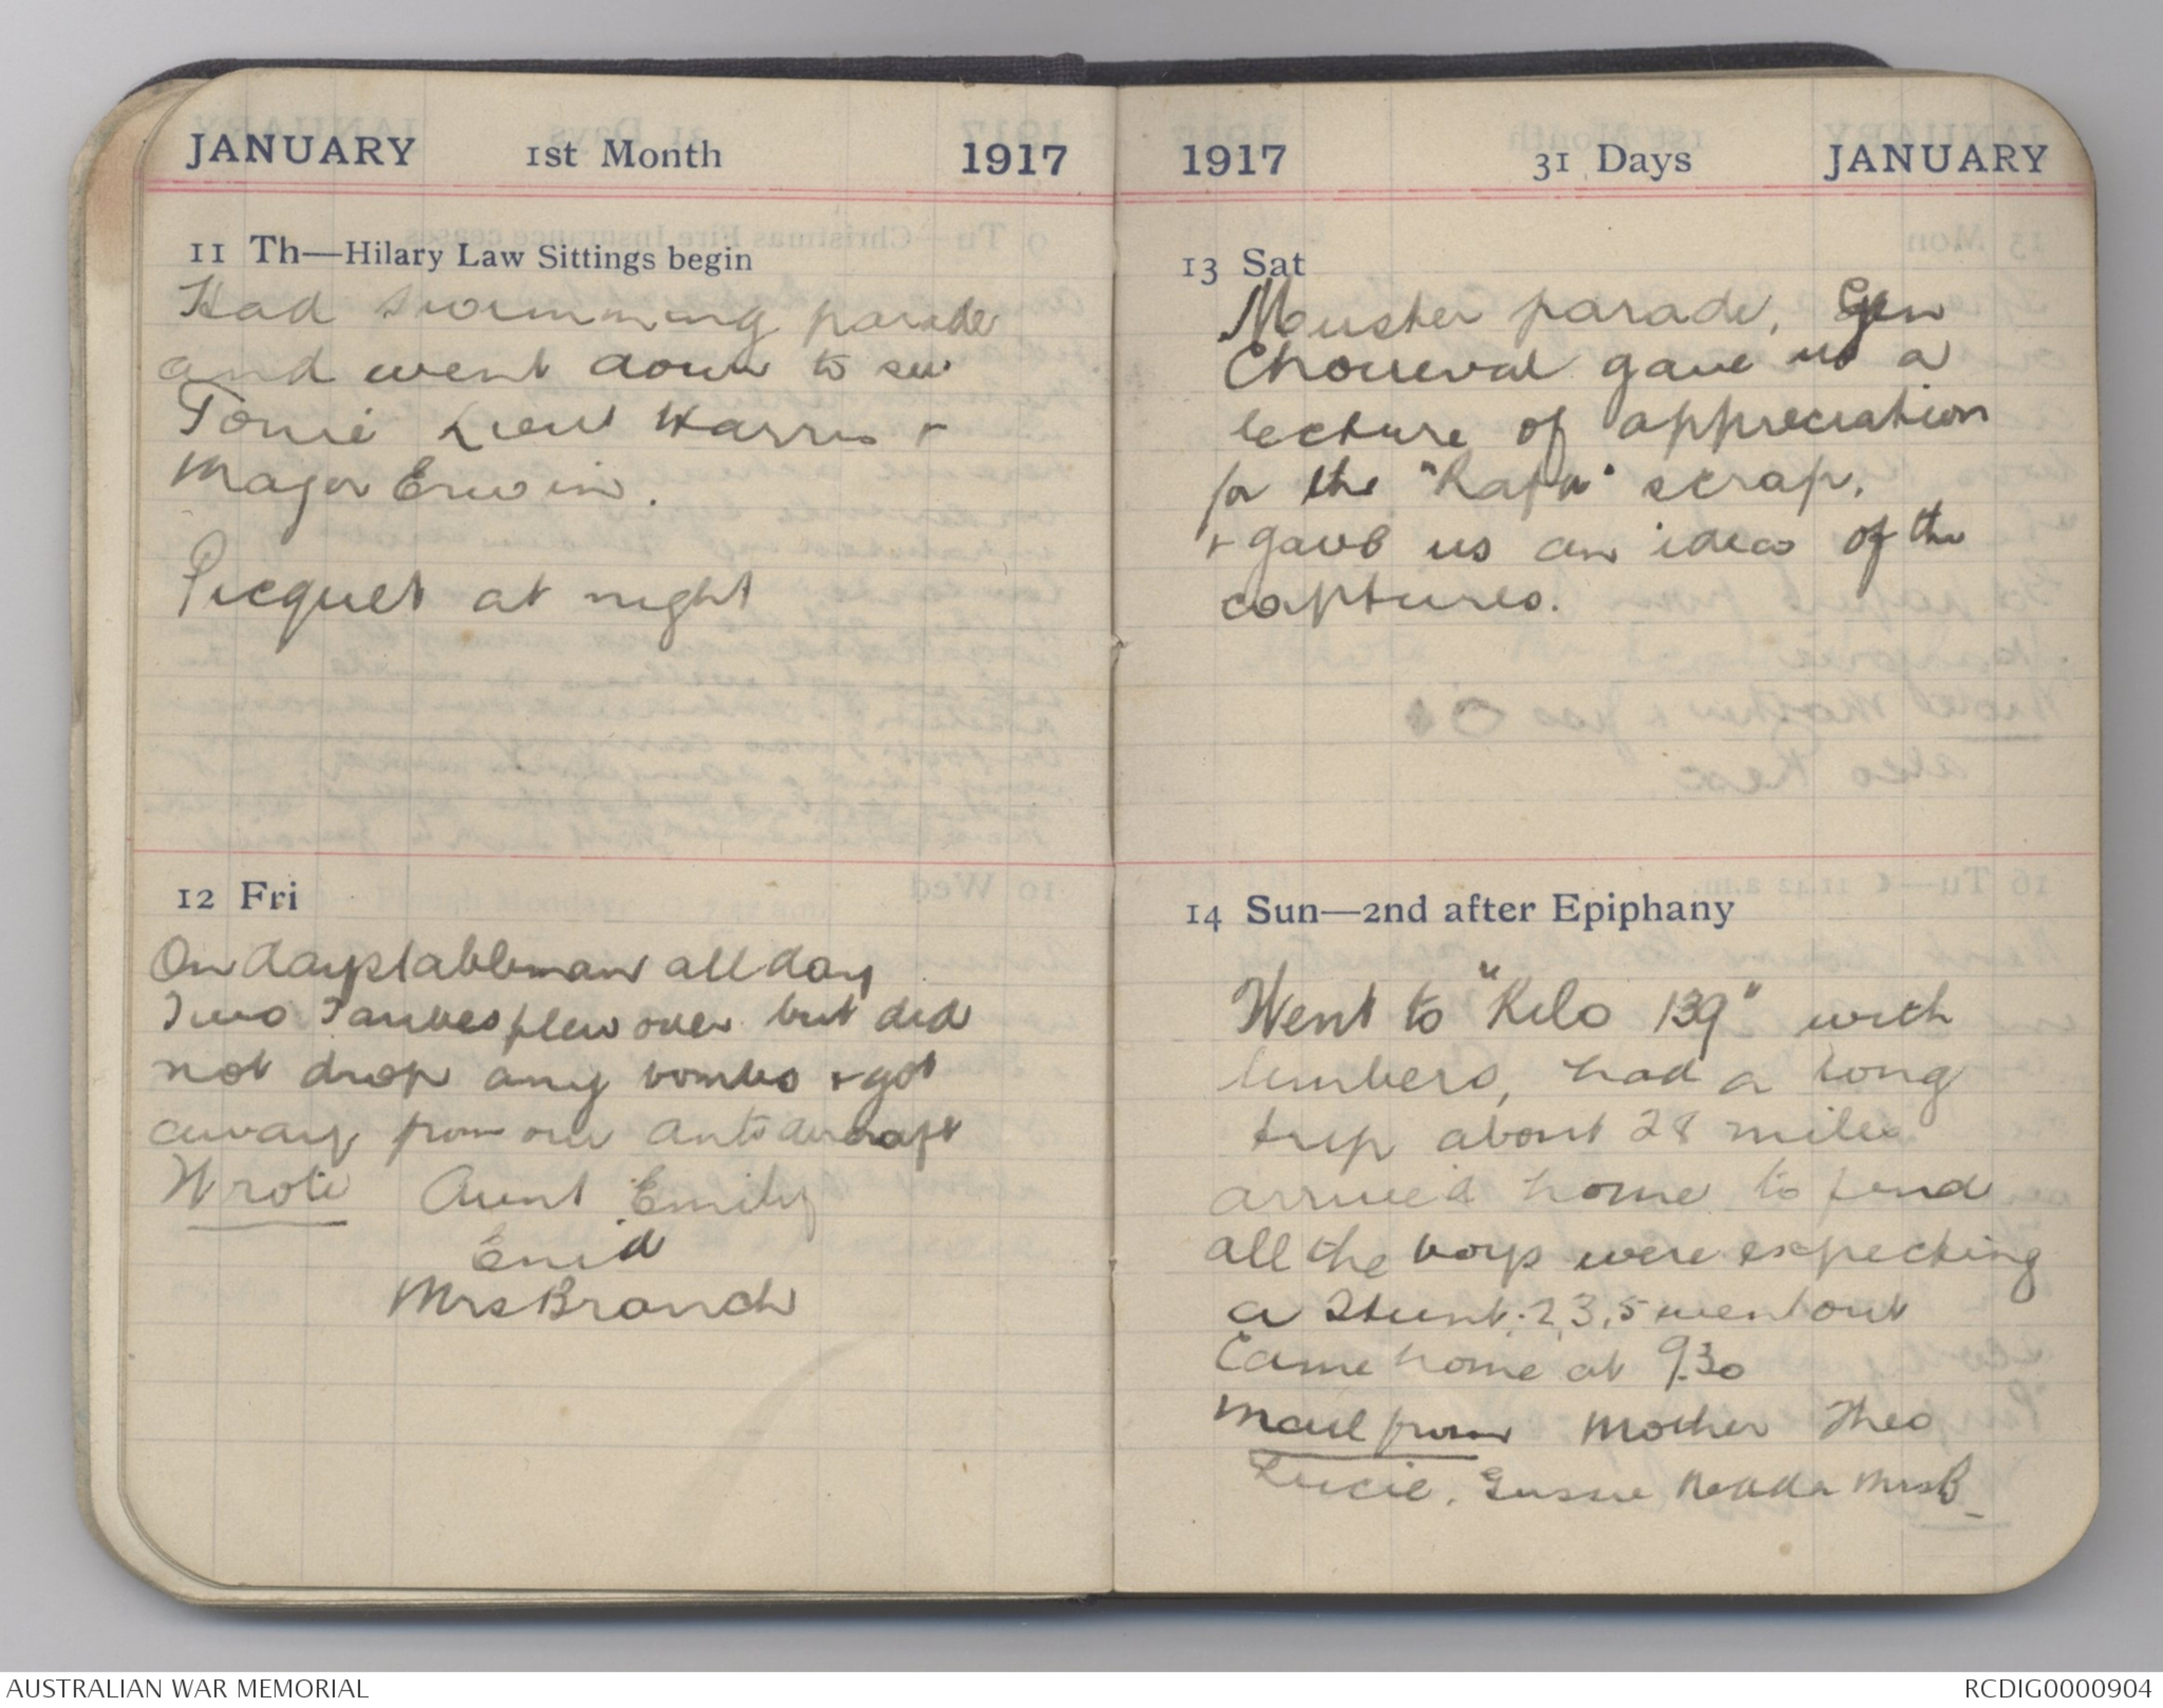 JANUARY 1st Month 1917
11 Th—Hilary Law Sittings begin
Had swimming parade
and went down to see
Tonie Lieut Harris +
Major Erwin.
Picquet at night
12 Fri
On daystableman all day
Two Taubes flew over but did
not drop any bombs + got
away from our antiaircraft
Wrote Aunt Emily
Enid
Mrs Branch
1917 31 Days JANUARY
13 Sat
Muster parade, Gen
Chouveval gave us a
lecture of appreciation
for the "Rafa" scrap.
+ gave us an idea of the
captures.
14 Sun—2nd after Epiphany
Went to "Kilo 139" with
limbers, had a long
trip about 28 miles
arrived home to find
all the boys were expecting
a Stunt. 2,3,5 went out
Came home at 9.30
Mail from Mother Theo
Lucie. Gussie Mrs B
AUSTRALIAN WAR MEMORIAL
RCDIG0000904